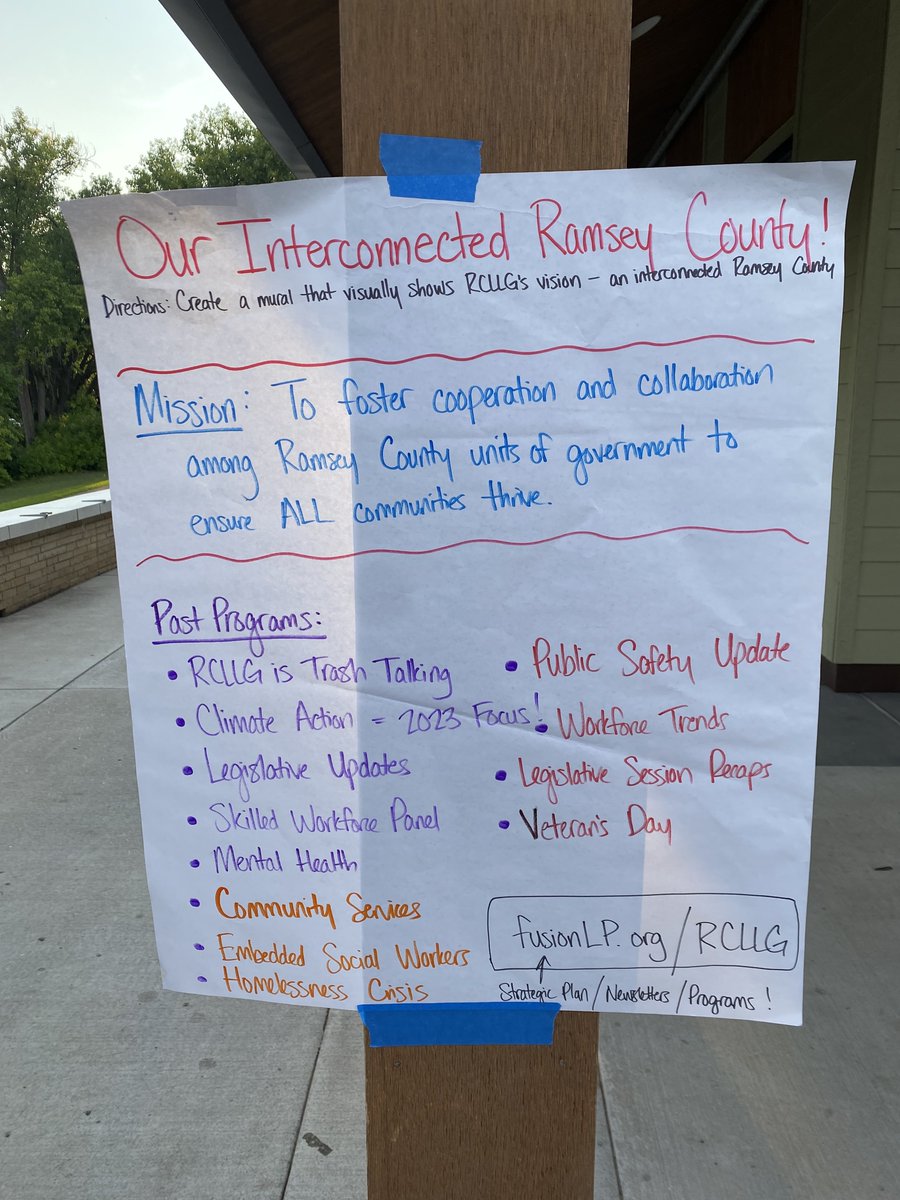 Our Interconnected Ramsey County!
Directions: Create a mural that visually shows RCLLG's vision – an interconnected Ramsey County
Mission: To foster cooperation and collaboration
among Ramsey County units of government to
ensure ALL communities thrive.
Past Programs:
• RCLLG is Trash Talking
• Climate Action = 2023 Focus!
• Legislative Updates
• Skilled Workforce Panel
• Mental Health
• Community Services
• Embedded Social Workers
• Homelessness Crisis
• Public Safety Update
• Workforce Trends
• Legislative Session Recaps
• Veteran's Day
fusionLP.org/RCLLG
Strategic Plan/Newsletters/Programs!